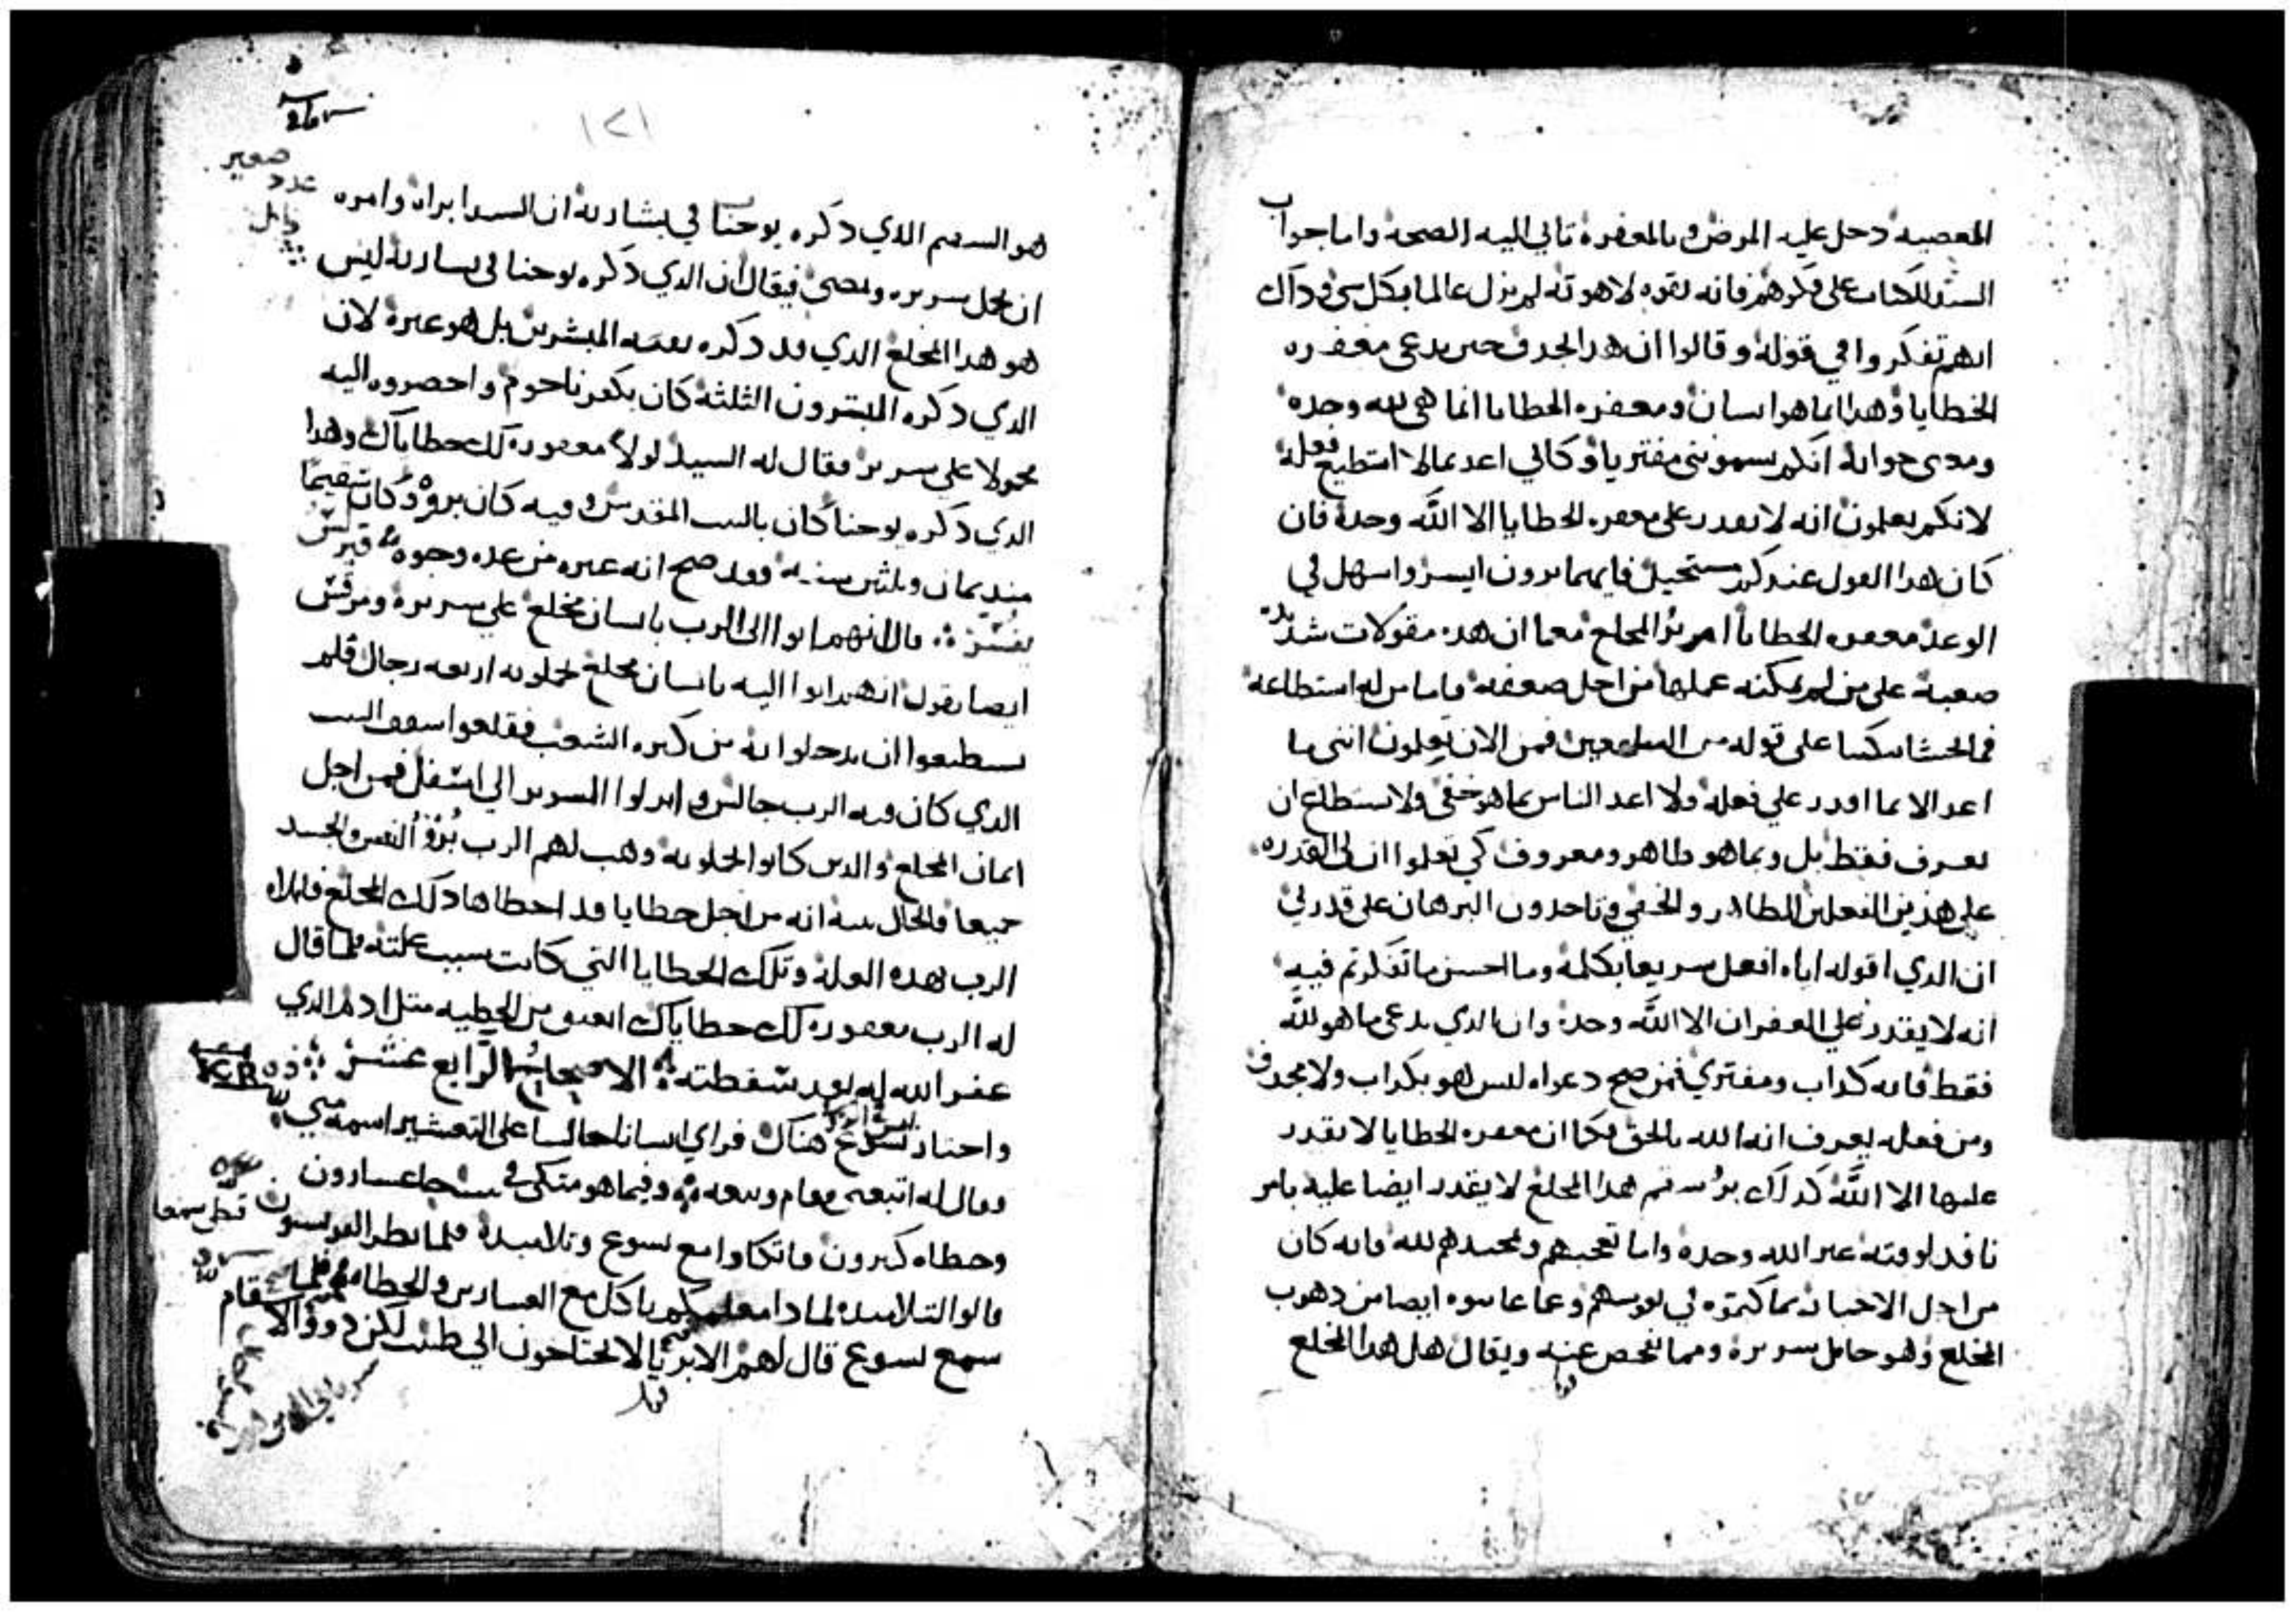 المعصيه دخل عليه المرض وبالمغفرة تاتي اليه الصحة واما جواب
السيد للكتاب على فكرهم فانه بقوه لاهوته لم يزل عالما بكل شي وذاك
انهم تفكروا في قوله وقالوا ان هدا يجدف حين يدعي مغفره
الخطايا وهدا انما هو انسان ومغفره الخطايا انما هي لله وحده
جوابه انكم تسمونني مفتريا وكاني اعد بما لا استطيع فعله
لانكم تعلمون انه لا يقدر على مغفره الخطايا الا الله وحده فان
كان هدا القول عندكم مستحيل فايهما ترون ايسر واسهل في
الوعد مغفره الخطايا ام برؤ المخلع معما ان هده مقولات شديده
صعبة على من لم يمكنه عملها من اجل ضعفه فاما من له استطاعة
على قوله من الان تعلمون انني ما
اعد الا بما اقدر علي فعله ولا اعد الناس بما هو خفي ولا يستطاع ان
يعرف فقط بل وبما هو ظاهر ومعروف كي تعلموا ان لي القدره
على هذين الفعلين الظاهر والخفي وتاخدون البرهان على قدرتي
ان الدي اقوله اياه افعل سريعا بكلمة وما احسن ما تفكرتم فيه
انه لا يقدر علي الغفران الا الله وحده وان الدي يدعي ما هو لله
فقط فانه كداب ومفتري فمن صح دعواه ليس هو بكداب ولا مجدف
ومن فعله يعرف انه الله بالحق فكما ان مغفره الخطايا لا يقدر
عليها الا الله كدلك برؤ سقم هدا المخلع لا يقدر ايضا عليه بامر
نافد لوقته غير الله وحده واما تعجبهم وتمجيدهم لله فانه كان
من اجل الاخبار بما كتموه في نفوسهم وعما عاينوه ايضا من دهوب
المخلع وهو حامل سريره ومما نفحص عنه ويقال هل هدا المخلع
١٢١
هو السقيم الدي دكره يوحنا في بشارته ان السيد ابراه وامره
ان يحمل سريره ويمضي فيقال ان الدي دكره يوحنا في بشارته ليس
هو هدا المخلع الدي قد دكره بقية المبشرين بل هو غيره لان
الدي دكره المبشرون الثلثة كان بكفرناحوم واحضروه اليه
محمولا على سرير فقال له السيد اولا مغفوره لك خطاياك وهدا
الدي دكره يوحنا كان بالبيت المقدس وفيه كان بروه وكان سقيما
مند ثمان وثلثين سنه فقد صح انه غيره من عده وجوه
قال انهم اتوا الى الرب بانسان مخلع علي سريره ومرقس
ايضا يقول انهم اتوا اليه بانسان مخلع يحملونه اربعه رجال فلم
يستطيعوا ان يدخلوا به من كثره الشعب فقلعوا سقف البيت
الدي كان فيه الرب جالس وانزلوا السرير الي اسفل فمن اجل
ايمان المخلع والدين كانوا يحملونه وهب لهم الرب برؤ النفس والجسد
جميعا فالحال بينه انه من اجل خطايا قد اخطاها دلك المخلع
الرب بهده العلة وتلك الخطايا التي كانت سبب علته فلما قال
له الرب مغفوره لك خطاياك اعتق من الخطيه متل ادم الدي
غفر الله له بعد سقطته الاصحاح الرابع عشر
واجتاز يسوع هناك فراي انسانا جالسا على التعشير اسمه متي
وقال له اتبعني فقام وتبعه وفيما هو متكي في بيته جا عشارون
وخطاه كثيرون فاتكاوا مع يسوع وتلاميده فلما نظر الفريسيون
قالوا لتلاميده لمادا معلمكم ياكل مع العشارين والخطاه فلما
سمع يسوع قال لهم الابريا لا يحتاجون الي طبيب لكن دووا الاسقام